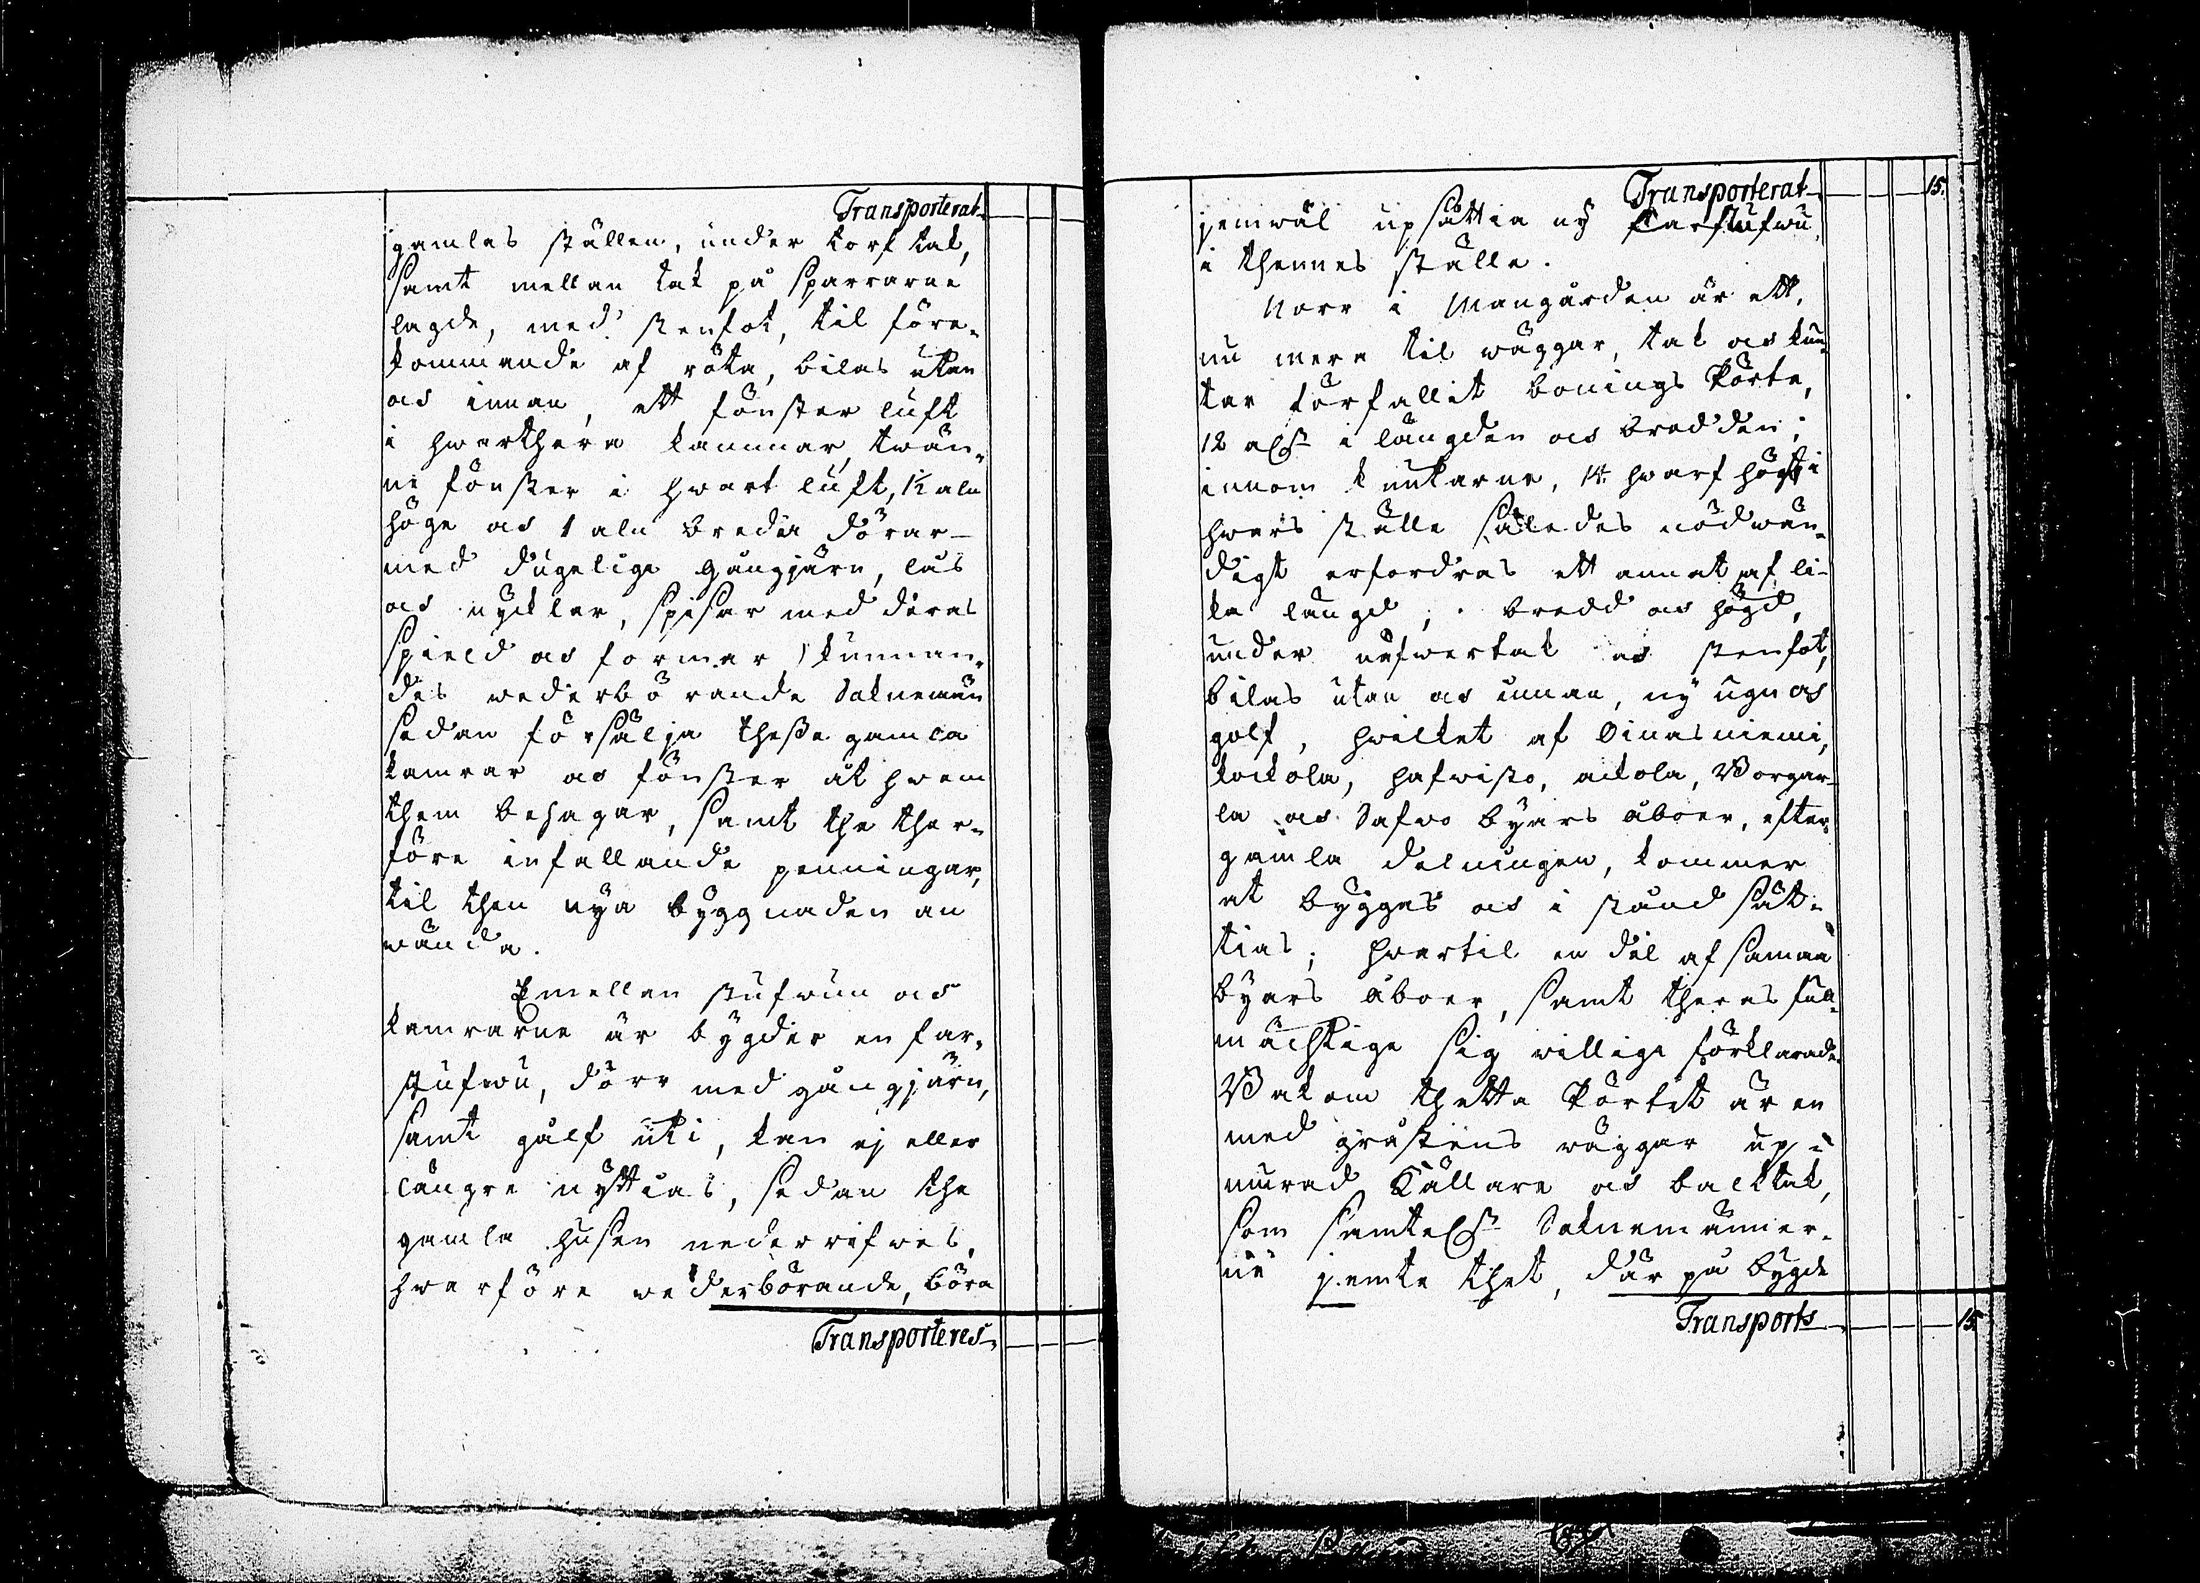 Transporterat
gamlas ställen, under torf tak,
samt mellan tak på sparrarne
lagde, med stenfot, til före-
kommande af röta, bilas utan
och innan, ett fönster luft
i hwarthera kammar, twän-
ne fönster i hwart luft, 1½ aln
höge och 1 aln breda dörar
med dugelige gångjärn, lås
och nycklar, spisar med deras
spield och formar, kunnan-
des wederbörande Soknemän
sedan försälja thessa gamla
kamrar och fönster åt hwem
them behagar, samt the ther-
före infallande penningar,
til then nya byggnaden an
wända.
Emellan stufwun och
kamrarne är bygder en far-
stufwu, dörr med gångjärn,
samt gålf uti, kan ej eller
längre nyttias, sedan the
gamla husen nederrifwes,
hwarföre wederbörande, böra
Transporteres
Transporterat 15.
jemwäl upsättia ny farstufwu,
i thennes ställe.
Norr i Mangården är ett,
nu mera til wäggar, tak och knu-
tar förfallit bonings Pörte,
12 aln i längden och bredden;
innom knutarne, 14 hwarf högt i
hwars ställe således nödwän-
digt erfordras ett annat af li-
ka längd, bredd och högd,
under näfwertak och stenfot,
bilas utan och innan, ny ugn och
golf, hwilket af Oinasniemi,
kockola, hafwisto, ackola, Worgar-
la och Safwo byars åboer, efter
gamla delningen, kommer
at bygges och i stånd sät-
tias; hwartil en del af samma
byars åboer, samt theras full-
mächtige sig willige förklarade.
Bakom thetta Pörtet är en
med gråstens wäggar up-
murad Källare och balktak,
som samtel. Soknemänner-
ne jemte thet, där på bygde
Transports 15.